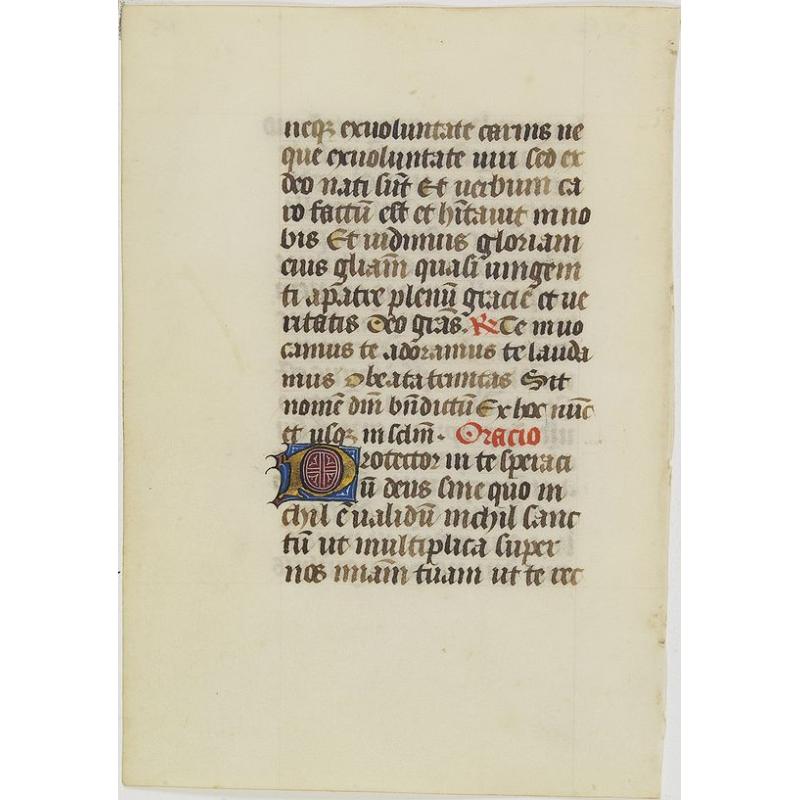 neqꝫ exuoluntate carnis ne
que exuoluntate uiri sed ex
deo nati sūt Et uerbum ca
ro factū est et hītauit inno
bis Et uidimus gloriam
eius gliām quasi unigeni
ti apatre plenū gracie et ue
ritatis Deo grās. ℞ Te inuo
camus te adoramus te lauda
mus O beata trinitas Sit
nomē dnī bn̄dictū Ex hoc nūc
et usqꝫ in sclm̄. Oracio
Protector in te speraci
ū deus sine quo in
chil ē ualidū nichil sanc
tū ut multiplica super
nos miām tuam ut te rec